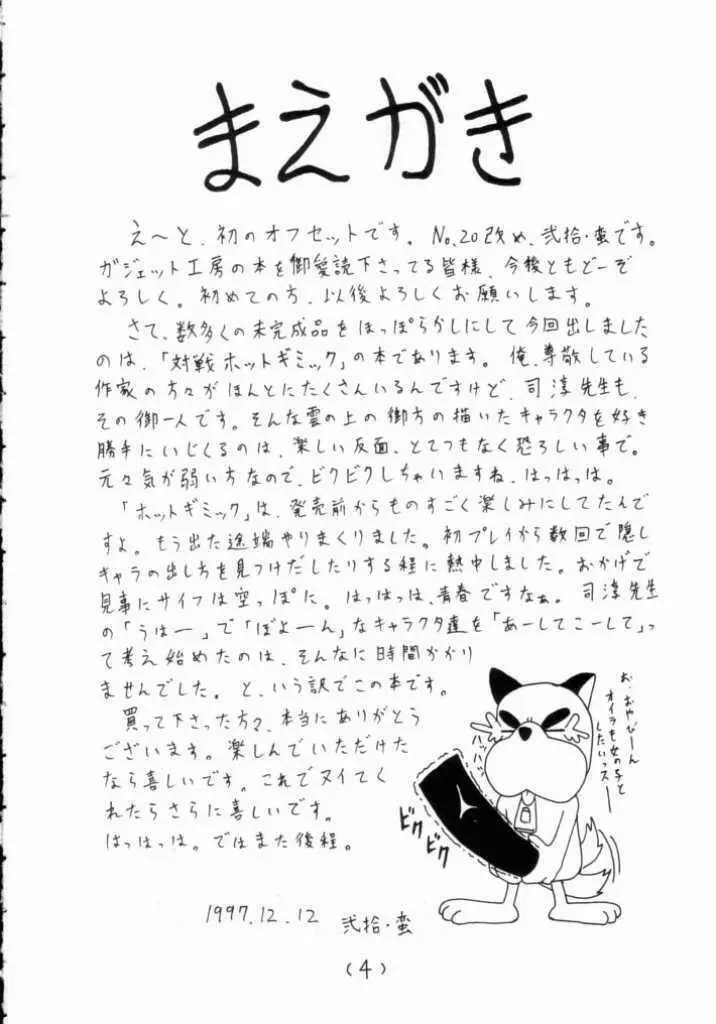 まえがき
え〜と、初のオフセットです。No.20改め、弐拾・蛮です。
ガジェット工房の本を御愛読下さってる皆様、今後ともどーぞ
よろしく。初めての方、以後よろしくお願いします。
さて、数多くの未完成品をほっぽらかしにして今回出しました
のは、「対戦ホットギミック」の本であります。俺、尊敬している
作家の方々がほんとにたくさんいるんですけど、司淳先生も、
その御一人です。そんな雲の上の御方の描いたキャラクタを好き
勝手にいじくるのは、楽しい反面、とてつもなく恐ろしい事で。
元々気が弱い方なので、ビクビクしちゃいますね、はっはっは。
「ホットギミック」は、発売前からものすごく楽しみにしてたんで
すよ。もう出た途端やりまくりました。初プレイから数回で隠し
キャラの出し方を見つけだしたりする程に熱中しました。おかげで
見事にサイフは空っぽに。はっはっは、青春ですなぁ。司淳先生
の「うはー」で「ぼよーん」なキャラクタ達を「あーしてこーして」っ
て考え始めたのは、そんなに時間かかり
ませんでした。と、いう訳でこの本です。
買って下さった方々、本当にありがとう
ございます。楽しんでいただけた
なら喜しいです。これでヌイてく
れたらさらに喜しいです。
はっはっは。ではまた後程。
1997.12.12 弐拾・蛮
お・おやびーん
オイラも女の子と
したいっスー
ハァハァ
ビク
ビク
(4)